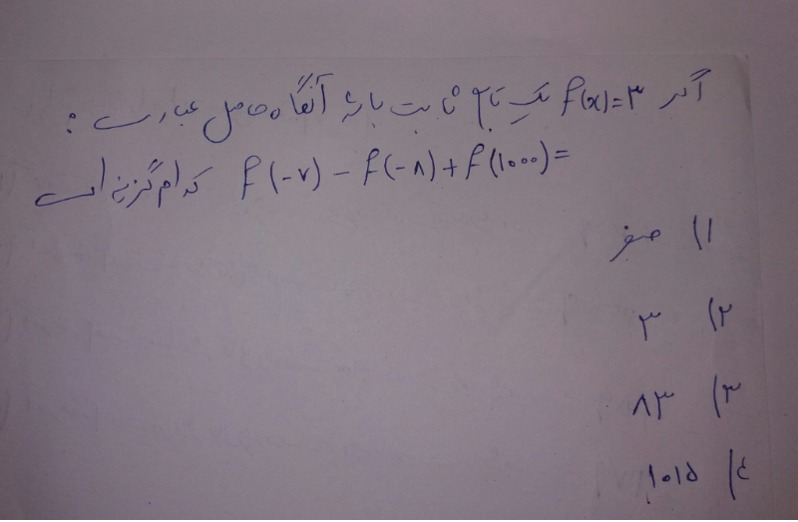 اگر f(x)=۳ یک تابع ثابت باشد آنگاه حاصل عبارت :
f(-۷) - f(-۸) + f(۱۰۰۰)= کدام گزینه است
۱) صفر
۲) ۳
۳) ۸۳
۴) ۱۰۱۵